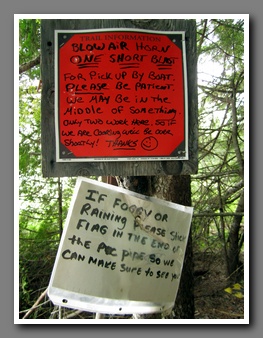 TRAIL INFORMATION
BLOW AIR HORN
ONE SHORT BLAST
FOR PICK UP BY BOAT.
PLEASE BE PATIENT.
WE MAY BE IN THE
MIDDLE OF SOMETHING.
ONLY TWO WORK HERE.
WE ARE COMING, WE'LL BE OVER
SHORTLY! THANKS
IF FOGGY OR
RAINING PLEASE STICK
FLAG IN THE END OF
THE PVC PIPE SO WE
CAN MAKE SURE TO SEE YOU